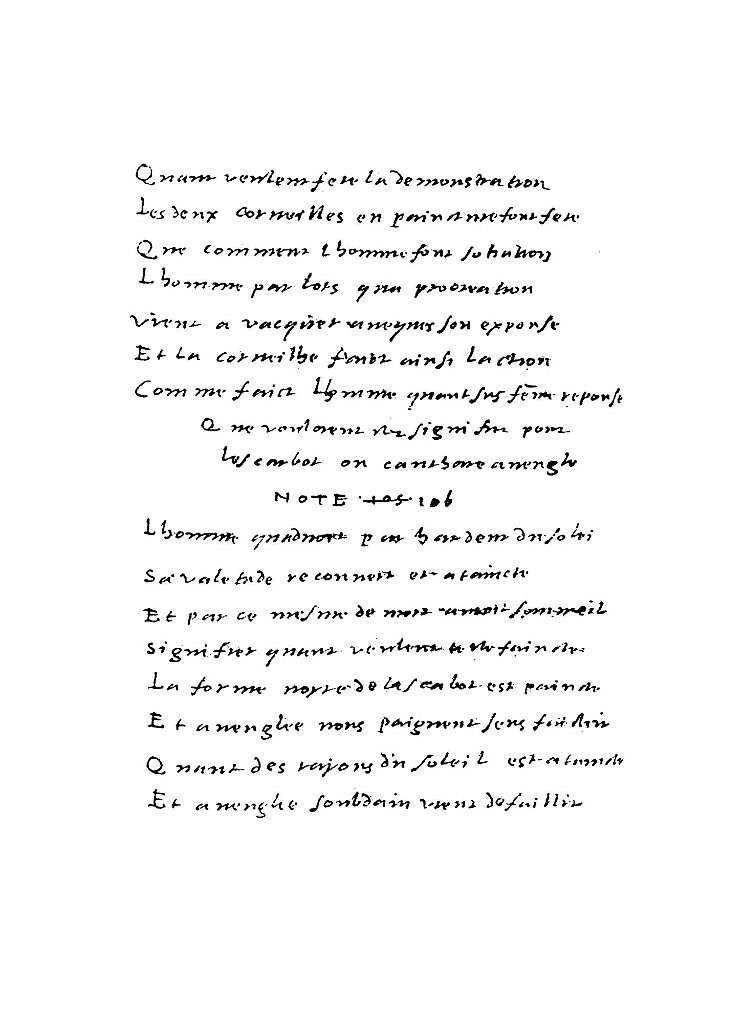 Quant veulent fere la demonstration
Les deux corneilles en painct me font fere
Que comment lhomme font
Lhomme par lors qua procreation
Vient a vacquer son exponse
Et la corneilhe faict ainsi laction
Comme faict lhomme quant sus feme reponse
Que vouloient signifier pour
Lescarbot ou canthare aveugle
NOTE 105 106
Lhomme quadvort par hardeur du solei
Sa valetude reconvert et ataincte
Et par ce mesme de mort amort sommeil
Signifier quant veulent faincte
La forme noyre de lescarbot est paincte
Et aveuglee nous paignent sens
Quant des rayons du soleil est atainte
Et aveuglee soubdain vient defaillir